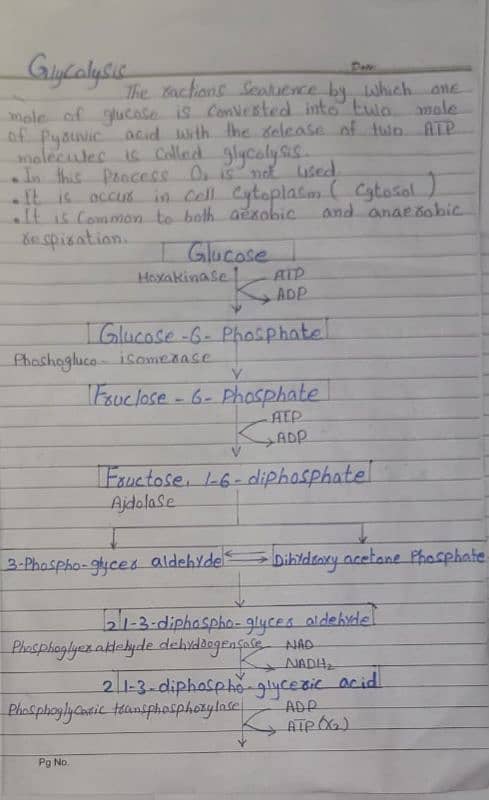 Glycolysis
Date:
The ractions Sealuence by which one
mole of glucose is Converted into two mole
of Pyruvic acid with the release of two ATP
molecules is Called glycolysis.
• In this Process O₂ is not used.
• It is occur in cell Cytoplasm ( Cytosol )
• It is Common to both aerobic and anaerobic
respiration.
Glucose
Hoxakinase
ATP
ADP
Glucose-6-Phosphate
Phoshogluco-isomerase
Fruclose-6-Phosphate
ATP
ADP
Fructose, 1-6-diphosphate
Ajdolase
3-Phospho-glycer aldehyde
Dihydroxy acetone Phosphate
2 1-3-diphospho-glycer aldehyde
Phosphoglyer aldehyde dehydrogensase
NAD
NADH₂
2 1-3-diphospho-glyceric acid
Phosphoglyceric transphosphorylase
ADP
ATP(x2)
Pg No.